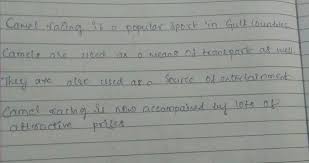 Camel racing is a popular sport in Gulf Countries
Camels are used as a means of transport as well.
They are also used as a source of entertainment
Camel racing is now accompanied by lots of
attractive prizes